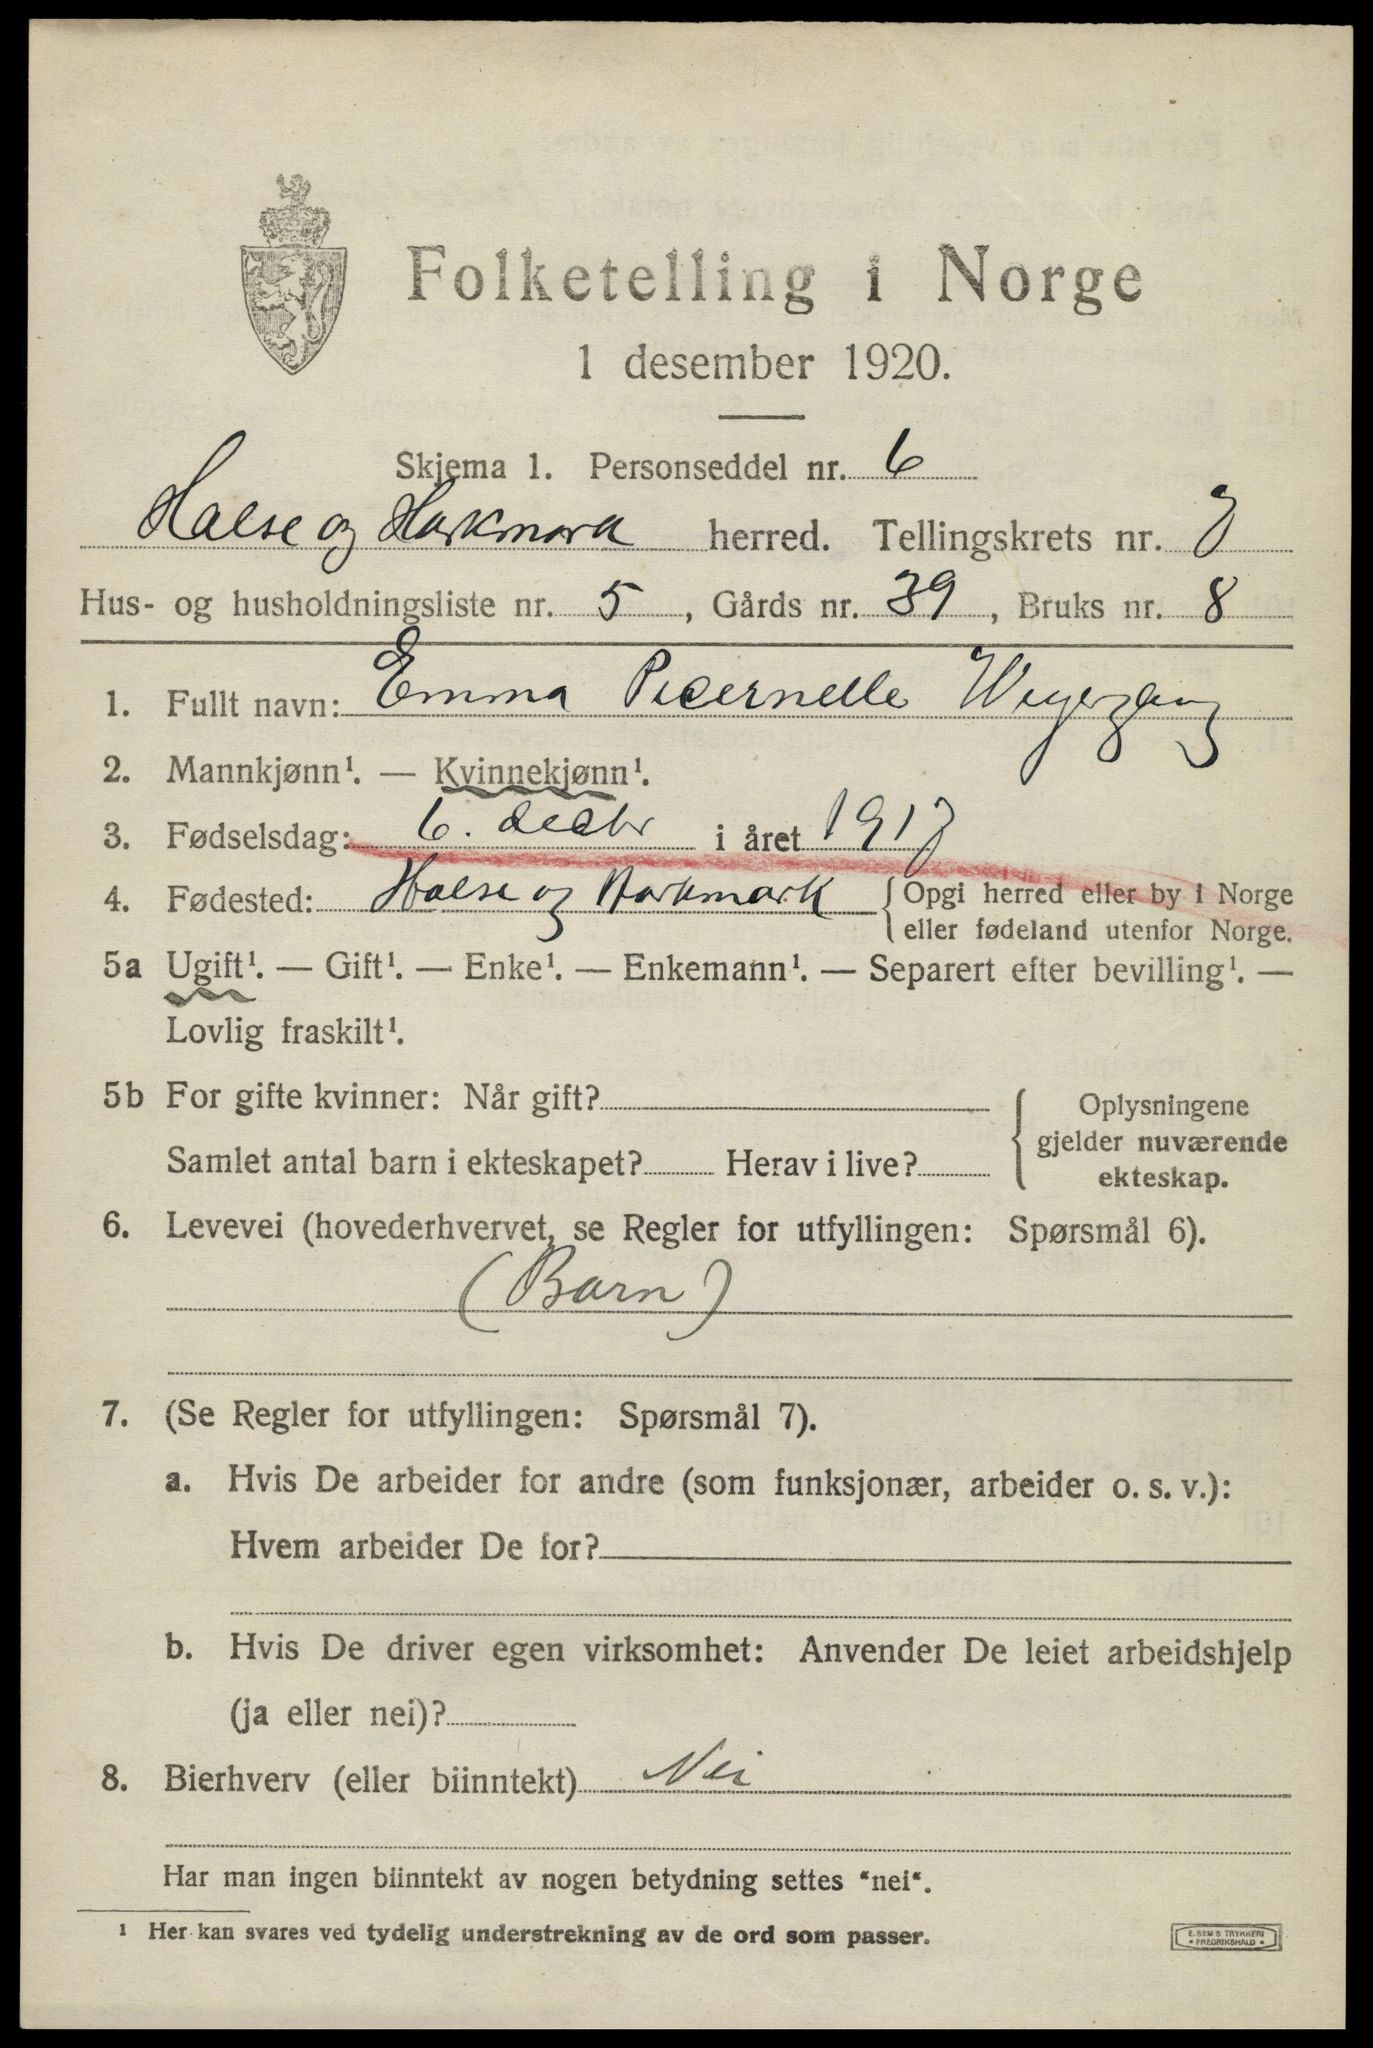 Folketelling i Norge
1 desember 1920.
Skjema 1. Personseddel nr. 6
Halse og Harkmark herred. Tellingskrets nr. 7
Hus- og husholdningsliste nr. 5, Gårds nr. 39, Bruks nr. 8
1. Fullt navn: Emma Peternelle
2. Mannkjønn¹. — Kvinnekjønn¹.
3. Fødselsdag: 6. decbr i året 1917
4. Fødested: Halse og Harkmark { Opgi herred eller by i Norge
eller fødeland utenfor Norge.
5a Ugift¹. — Gift¹. — Enke¹. — Enkemann¹. — Separert efter bevilling¹. —
Lovlig fraskilt¹.
5b For gifte kvinner: Når gift?
Samlet antal barn i ekteskapet? Herav i live?
{ Oplysningene
gjelder nuværende
ekteskap.
6. Levevei (hovederhvervet, se Regler for utfyllingen: Spørsmål 6).
(Barn)
7. (Se Regler for utfyllingen: Spørsmål 7).
a. Hvis De arbeider for andre (som funksjonær, arbeider o. s. v.):
Hvem arbeider De for?
b. Hvis De driver egen virksomhet: Anvender De leiet arbeidshjelp
(ja eller nei)?
8. Bierhverv (eller biinntekt) Nei
Har man ingen biinntekt av nogen betydning settes "nei".
¹ Her kan svares ved tydelig understrekning av de ord som passer.
E. SEM'S TRYKKERI
• FREDRIKSHALD •